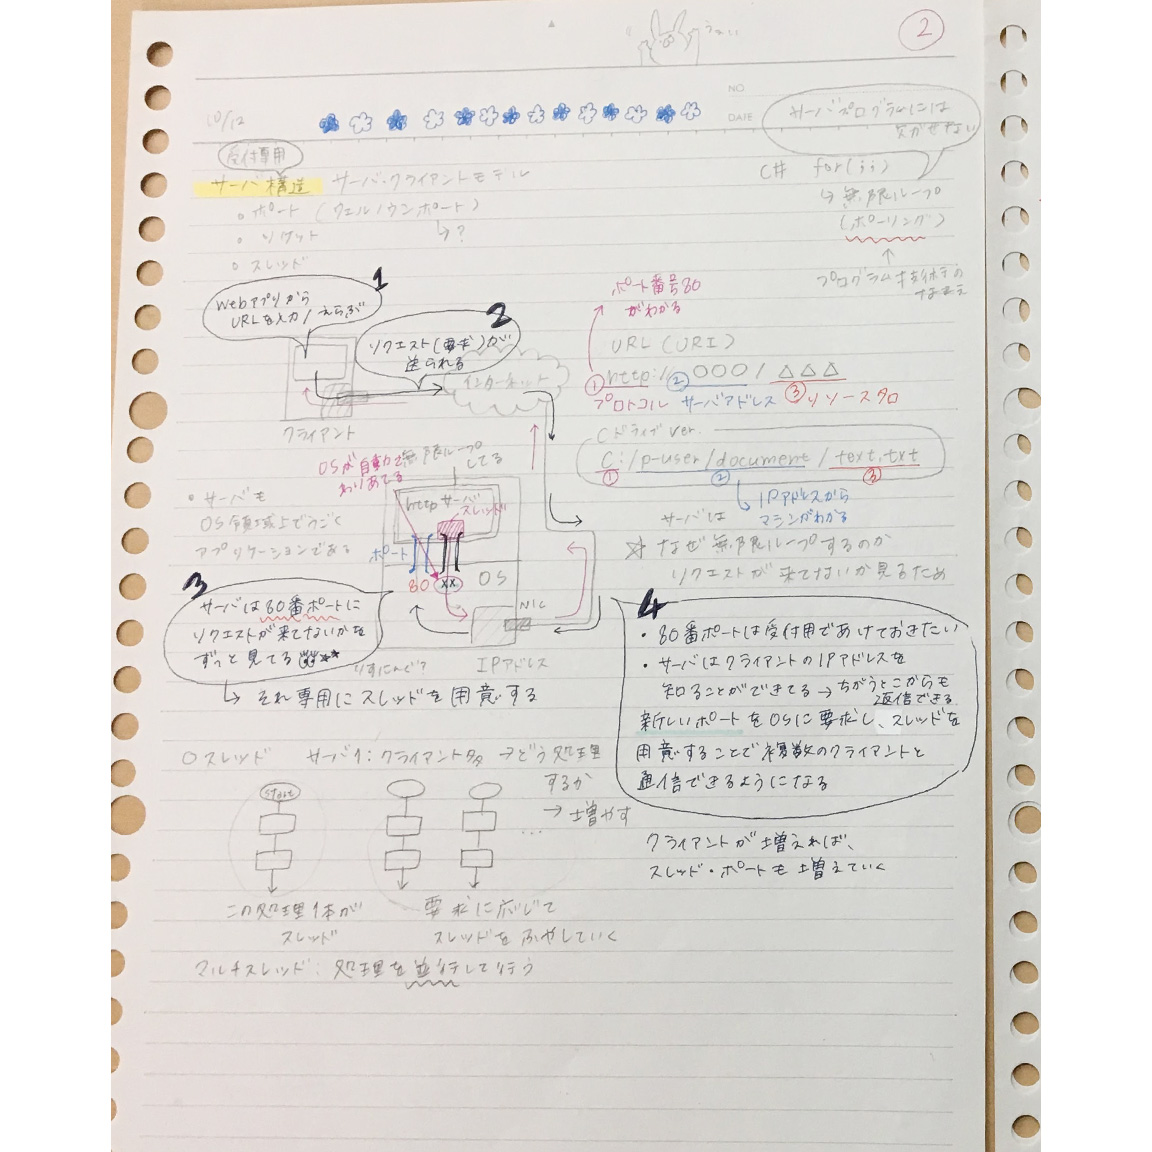 うぇい
2
NO
DATE
10/12
サーバプログラムには
欠かせない
受付専用
サーバ構造 サーバ・クライアントモデル
C# for(;;)
↳ 無限ループ
(ポーリング)
↑
プログラム技術の
なまえ
。ポート (ウェルノウンポート)
↳ ?
。ソケット
。スレッド
1
Webアプリから
URLを入力/えらぶ
2
リクエスト(要求)が
送られる
インターネット
クライアント
ポート番号80
がわかる
URL (URI)
① http:// ② ○○○ / △△△
プロトコル サーバアドレス ③リソースタロ
Cドライブ ver.
C:/p-user/document/text.txt
① ② ③
↳ IPアドレスから
マシンがわかる
OSが自動で
わりあてる
無限ループ
してる
httpサーバ
スレッド
ポート
80
××
OS
NIC
IPアドレス
りすにんぐ?
・サーバも
OS領域上でうごく
アプリケーションである
サーバは
☆ なぜ無限ループするのか
リクエストが来てないか見るため
3
サーバは80番ポートに
リクエストが来てないかを
ずっと見てる
↳ それ専用にスレッドを用意する
4
・80番ポートは受付用であけておきたい
・サーバはクライアントのIPアドレスを
知ることができてる → ちがうとこからも
返信できる
新しいポートをOSに要求し、スレッドを
用意することで複数のクライアントと
通信できるようになる
クライアントが増えれば、
スレッド・ポートも増えていく
○スレッド サーバ1:クライアント多 →どう処理
するか
→ 増やす
start
...
この処理1本が
スレッド
要求に応じて
スレッドをふやしていく
マルチスレッド:処理を並行して行う